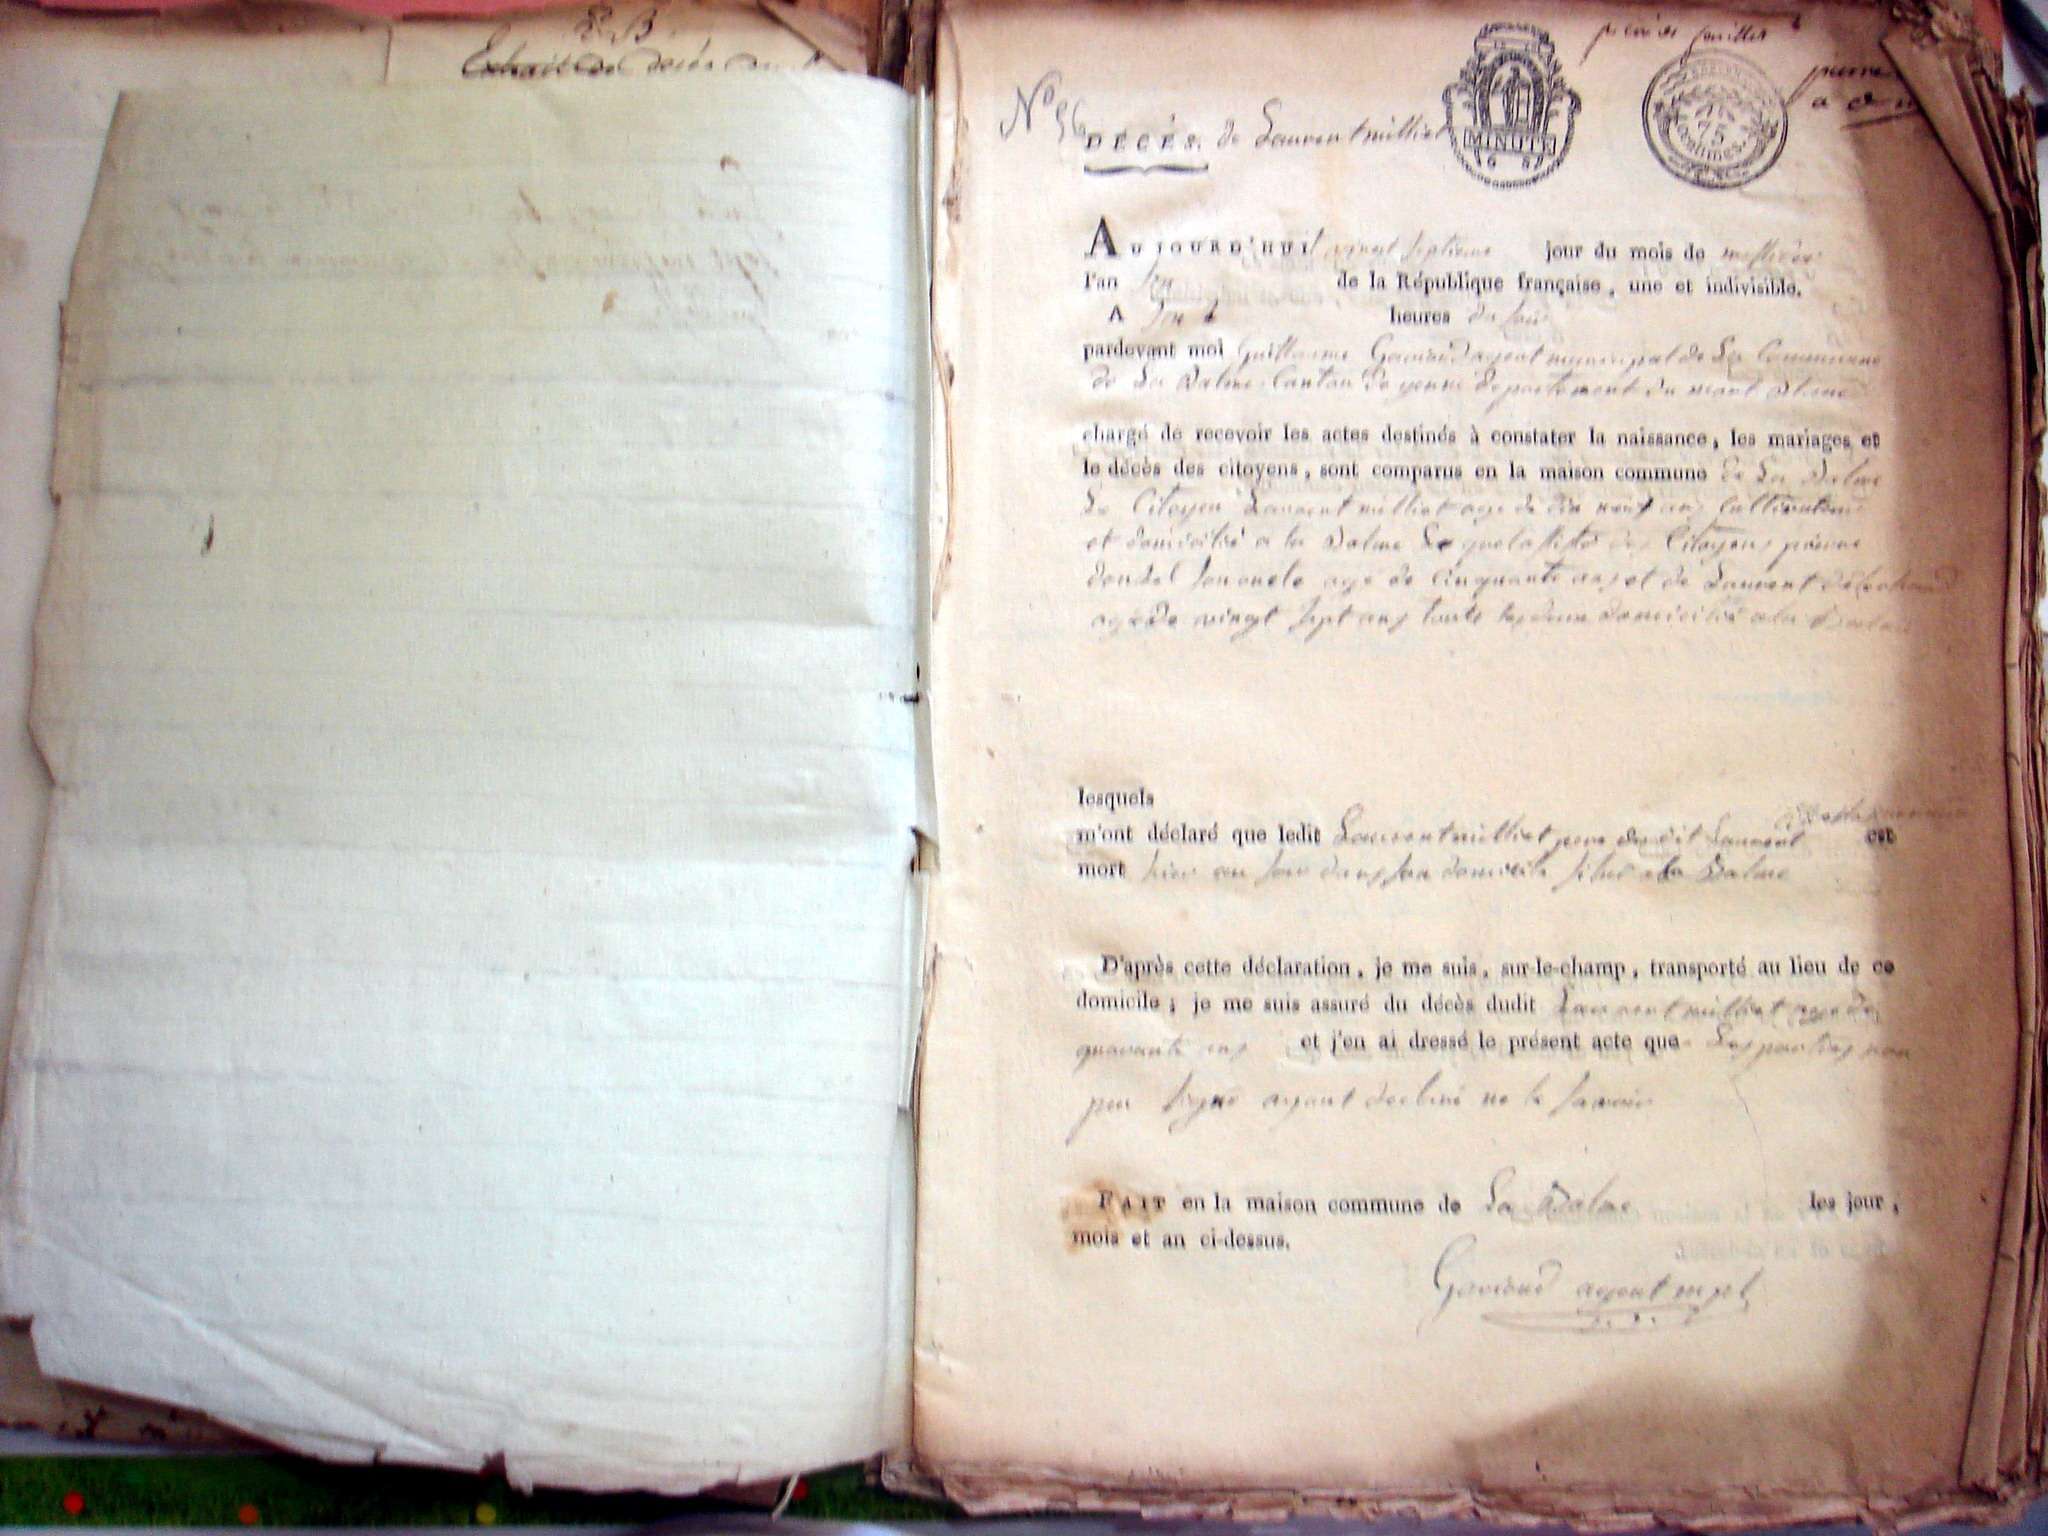 E B.
Extrait de décès
premier feuillet
pierre
a
MINUTE
75
centimes.
N° 56
DÉCÈS. de Laurent milliet
AUJOURD'HUI vingt septieme jour du mois de messidor
l'an de la République française, une et indivisible.
A heures du soir
pardevant moi Guillaume Gavend agent municipal de La Commune
de La Balme Canton de yenne departement du mont blanc
chargé de recevoir les actes destinés à constater la naissance, les mariages et
le décès des citoyens, sont comparus en la maison commune de La Balme
Le Citoyen Laurent milliet age de dix neuf ans Cultivateur
et domicilié a la Balme Le quel assisté des Citoyens pierre
dondel son oncle agé de cinquante ans et de Laurent
agé de vingt sept ans touts les deux domicilié a la Balme
lesquels
m'ont déclaré que ledit Laurent milliet pere du dit Laurent est
mort hier au soir dans son domicile situé a la Balme
D'après cette déclaration, je me suis, sur-le-champ, transporté au lieu de ce
domicile; je me suis assuré du décès dudit Laurent milliet age de
quarante ans et j'en ai dressé le présent acte que Les parties non
peu signé ayant declaré ne le savoir
FAIT en la maison commune de La Balme les jour,
mois et an ci-dessus.
Gavend agent mpl